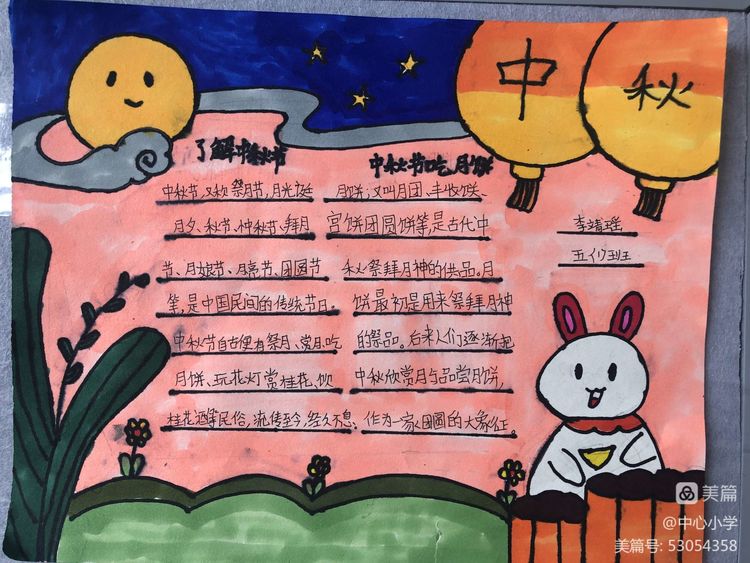 中
秋
了解中秋节
中秋节,又称祭月节,月光诞
月夕、秋节、仲秋节、拜月
节、月娘节、月亮节、团圆节
等,是中国民间的传统节日。
中秋节自古便有祭月、赏月、吃
月饼、玩花灯赏桂花、饮
桂花酒等民俗,流传至今,经久不息。
中秋节吃月饼
月饼,又叫月团、丰收饼、
宫饼团圆饼等,是古代中
秋祭拜月神的供品。月
饼最初是用来祭拜月神
的祭品。后来人们逐渐把
中秋欣赏月与品尝月饼,
作为一家团圆的大象征。
李靖瑶
五(1)班
美篇
@中心小学
美篇号: 53054358